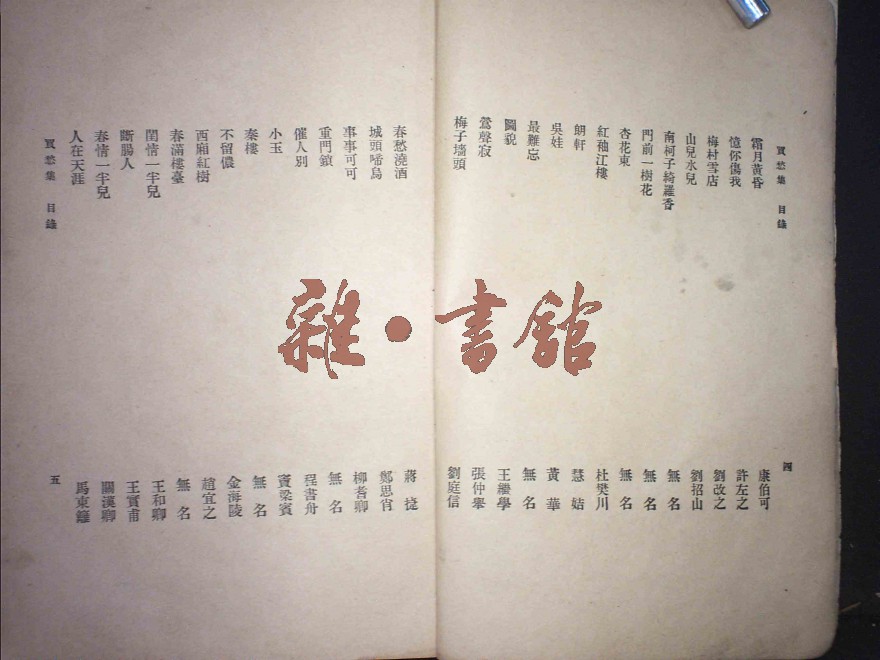 買愁集 目錄
霜月黃昏 康伯可
憶你傷我 許左之
梅村雪店 劉改之
山兒水兒 劉招山
南柯子綺羅香 無名
門前一樹花 無名
杏花東 無名
紅袖江樓 杜樊川
朗軒 慧姞
吳娃 黃華
最難忘 無名
圖貌 王繼學
鶯聲寂 張仲舉
梅子墻頭 劉庭信
四
春愁澆酒 蔣捷
城頭啼烏 鄭思肖
事事可可 柳耆卿
重門鎖 無名
催人別 程書舟
小玉 竇梁賓
秦樓 無名
不留儂 金海陵
西廂紅樹 趙宜之
春滿樓臺 無名
閨情一半兒 王和卿
斷腸人 王實甫
春情一半兒 關漢卿
人在天涯 馬東籬
買愁集 目錄
五
雜·書館